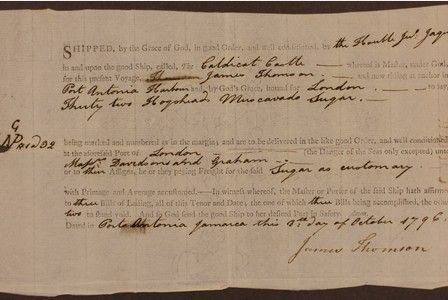 SHIPPED, by the Grace of God, in good Order, and well conditioned, by the Honble Jno. Jaq
in and upon the good Ship, called, The Caldicot Castle whereof is Master, under God,
for this present Voyage, James Thomson and now riding at anchor in
Port Antonia Harbour and, by God's Grace, bound for London to say,
Thirty two Hogsheads Muscavado Sugar.
being marked and numbered as in the margin; and are to be delivered in the like good Order, and well conditioned
at the aforesaid Port of London (the Danger of the Seas only excepted) unto
Messrs. Davidsons and Graham
or to their Assigns, he or they paying Freight for the said Sugar as customary
with Primage and Average accustomed. In witness whereof, the Master or Purser of the said Ship hath affirmed
to three Bills of Lading, all of this Tenor and Date; the one of which three Bills being accomplished, the other
two to stand void. And so God send the good Ship to her desired Port in Safety.
Dated in Port Antonia Jamaica this day of October 1796
James Thomson